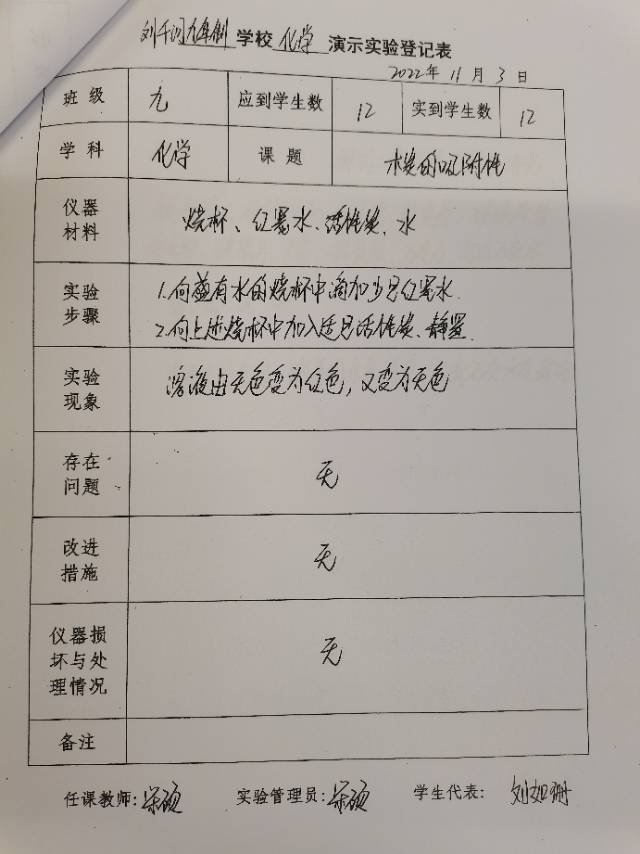 刘千河九年制 学校 化学 演示实验登记表
2022年 11 月 3 日
班级 九 应到学生数 12 实到学生数 12
学科 化学 课题 木炭的吸附性
仪器材料 烧杯、红墨水、活性炭、水
实验步骤 1.向盛有水的烧杯中滴加少量红墨水.
2.向上述烧杯中加入适量活性炭、静置.
实验现象 溶液由无色变为红色，又变为无色
存在问题 无
改进措施 无
仪器损坏与处理情况 无
备注
任课教师: 实验管理员: 学生代表: 刘如珊